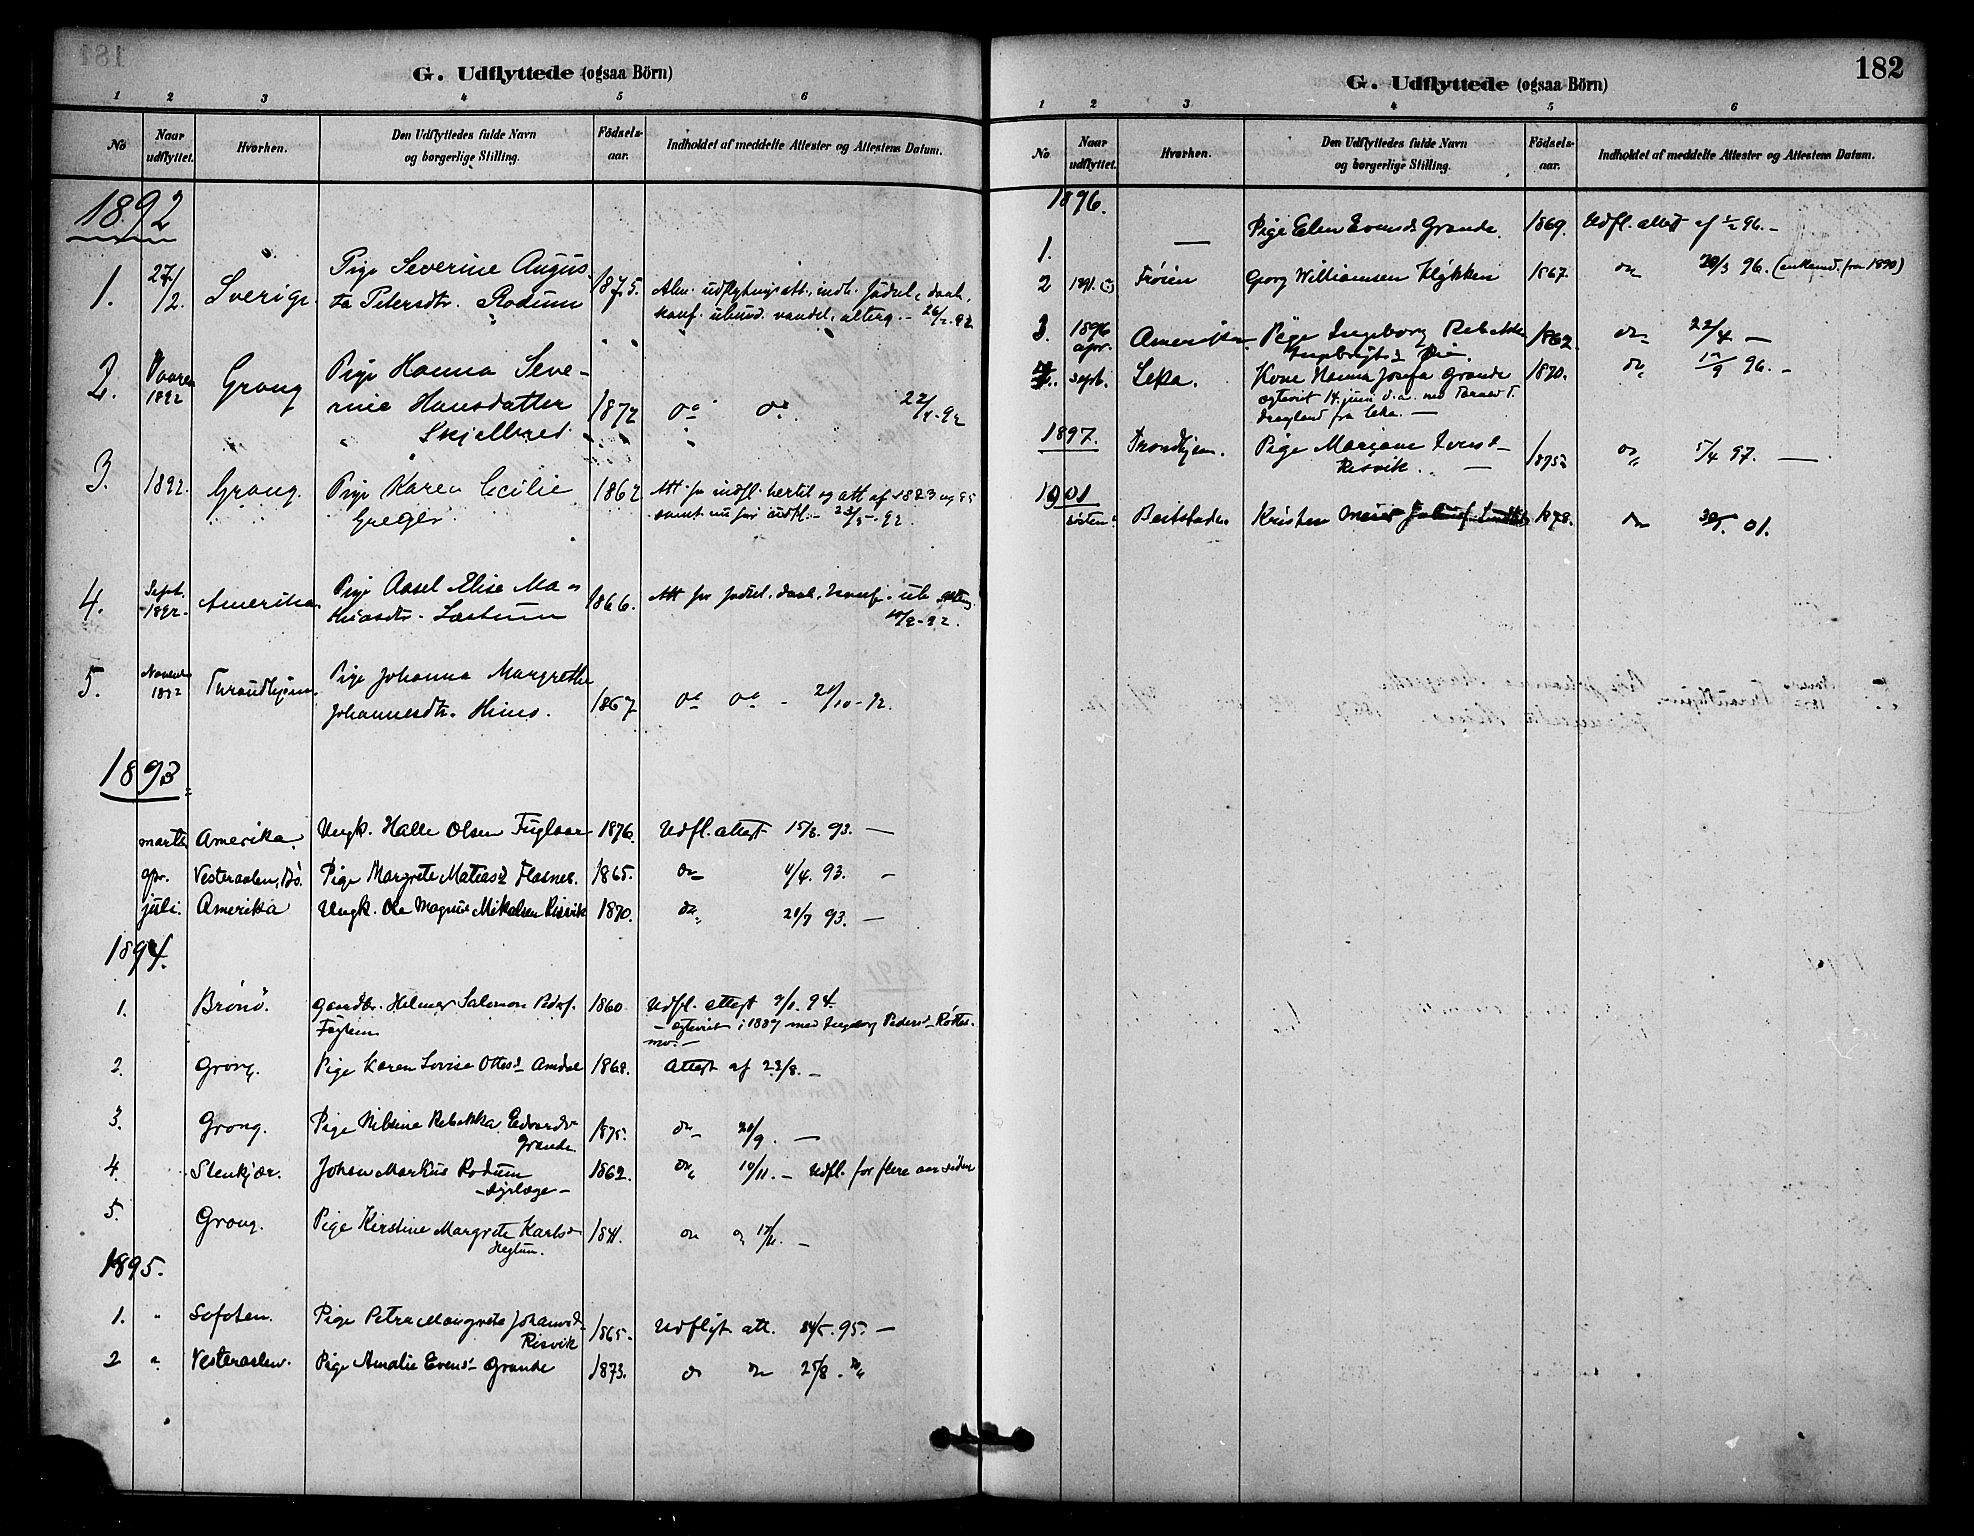 G. Udflyttede (ogsaa Börn)
1 2 3 4 5 6
No
Naar udflyttet.
Hvorhen.
Den Udflyttedes fulde Navn og borgerlige Stilling.
Födsels-aar.
Indholdet af meddelte Attester og Attestens Datum.
1892
1. 27/2. Sverige. Pige Severine Augus- 1875. Alm. udflytnings att., indh. födsel, daab,
ta Petersdtr. Rodum konf. ubund. vandel, alterg. - 26/2. 92
2. Vaaren 1892 Grong Pige Hanna Seve-
rine Hansdatter 1872 do do 22/4-92
Skjelbred
3. 1892. Grong. Pige Karen Cecilie 1862 Att. for indfl. hertil og att af 1883 og 85
Greger. samt nu for udfl. - 23/5-92.
4. Sept. 1892. Amerika. Pige Aasel Elise Ma- 1866. Att for födsel, daab, konf. ub.
thiasdtr. 92.
5. 1892 Tronddhjem. Pige Johanna Margrethe
Johannesdtr. Himo. 1867 do do - 20/10-92.
1893
marts Amerika. Ungk. Halle Olsen Fuglaar 1876. Udfl. attest 15/3. 93. —
apr. Vesteraalen, Bö. Pige Margrete Matiasd Flasnes. 1865. do 4/4. 93. -
juli. Amerika Ungk. Ole Magnus Mikalsen Risvik 1870. do 20/7 93. —
1894.
1. Brönö. Gaardbr. Helmer Salomon Pedersf. 1860. Udfl. attest 9/1. 94.
- ægteviet i 1887 med Ingeborg Pedersd Röttes-
mo. -
2. Grong. Pige Karen Lovise Ottesd Amdal 1868. Attest af 23/8. -
3. Grong. Pige Nilsine Rebekka Edvards- 1875. do 20/9. —
Grande
4. Stenkjær. Johan Markus Rodum 1862. do 10/11. - Udfl. for flere aar siden
- dyrlæge -
5. Grong. Pige Kirstine Margrete Karlsd 1841. do
1895.
1. " Lofoten. Pige Petra Margrete Johansd
Risvik 1865. Udflyt. att. 95. —
2 " Vesteraalen. Pige Amalie Evensd Grande 1873. do do 25/8. do
G. Udflyttede (ogsaa Börn)
182
1 2 3 4 5 6
No
Naar udflyttet.
Hvorhen.
Den Udflyttedes fulde Navn og borgerlige Stilling.
Födsels-aar.
Indholdet af meddelte Attester og Attestens Datum.
1896.
1. — Pige Elen Evensd Grande. 1869. Udfl. attest af 1/2 96. -
2 Fröien Georg Williamsen Hökken 1867. do 20/3 96. (fra 1890)
3. 1896 apr. Amerika. Pige Ingeborg Rebekka 1862. do 22/4 —
Ingebrigtsd
4. sept. Leka. Kone Nanna Josefa Grande 1870. do 96. -
ægteviet 14. juni d. a. med
fra Leka. —
1897. Trondhjem. Pige Marjane Iversd - 1875. do 5/4 97. —
Risvik. —
1901
Beitstaden Kristen 1878. do 01.